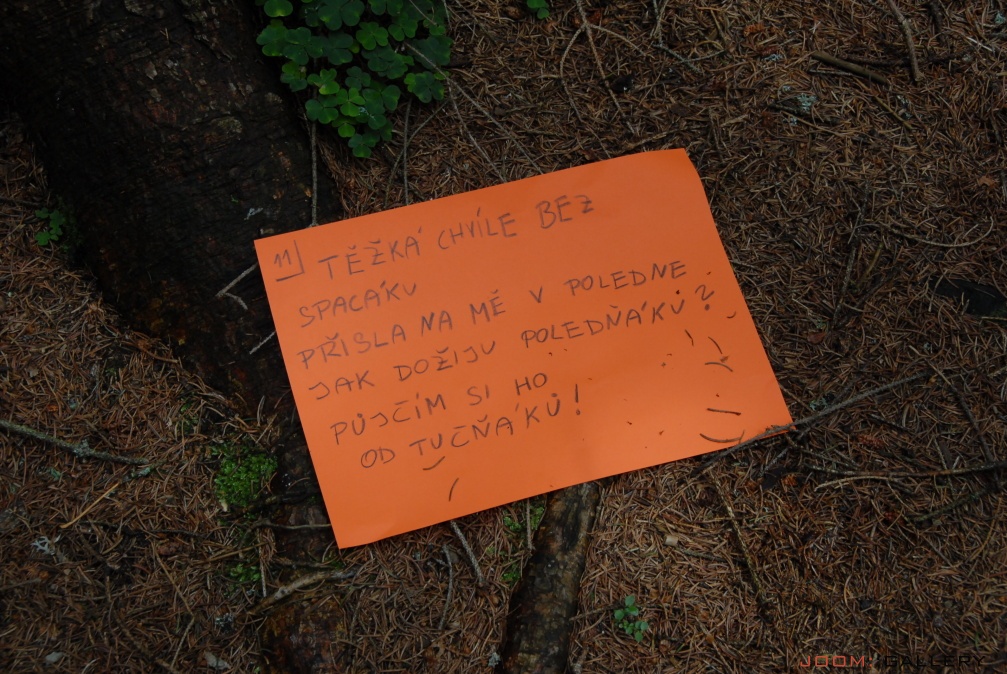 11 TĚŽKÁ CHVÍLE BEZ
SPACÁKU
PŘIŠLA NA MĚ V POLEDNE.
JAK DOŽIJU POLEDŇÁKŮ?
PŮJČÍM SI HO
OD TUČŇÁKŮ!
JOOM::GALLERY